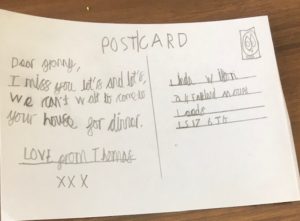 POSTCARD
Dear Granny,
I miss you lot's and lot's,
We can't wait to come to
your house for dinner.
LOVE from Thomas
X X X
Leeds
LS17